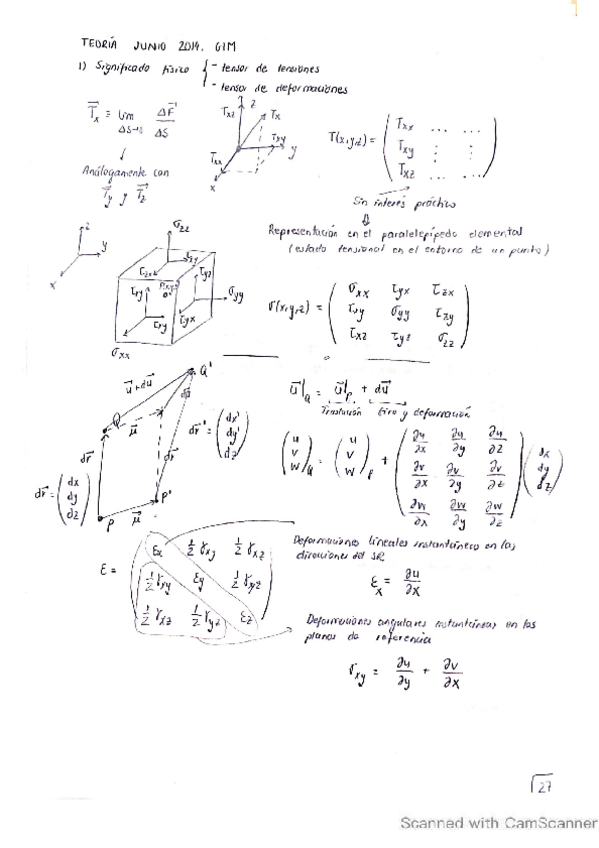 TEORÍA JUNIO 2014. GIM
1) Significado físico { - tensor de tensiones
- tensor de deformaciones
T⃗x ≡ lim ΔF⃗ / ΔS
ΔS→0
Txz z Tx
Txy y
Txx
x
T(x,y,z) = ( Txx ... ...
Txy ⋮ ⋮
Txz ... ... )
Análogamente con
T⃗y y T⃗z
Sin interés práctico
Representación en el paralelepípedo elemental
(estado tensional en el entorno de un punto)
z y x
σzz
σyy
σxx
σ(x,y,z) = ( σxx τyx τzx
τxy σyy τzy
τxz τyz σzz )
Q'
u⃗+du⃗
du⃗
Q
u⃗
dr⃗
dr⃗' = ( dx'
dy'
dz )
dr⃗ = ( dx
dy
dz )
P
u⃗
P'
u⃗|Q = u⃗|P + du⃗
Traslación giro y deformación
( u
v
w )Q = ( u
v
w )P + ( ∂u/∂x ∂u/∂y ∂u/∂z
∂v/∂x ∂v/∂y ∂v/∂z
∂w/∂x ∂w/∂y ∂w/∂z ) ( dx
dy
dz )
ε = ( εx 1/2 γxy 1/2 γxz
1/2 γxy εy 1/2 γyz
1/2 γxz 1/2 γyz εz )
Deformaciones lineales instantáneas en las
direcciones del SR
εx = ∂u/∂x
Deformaciones angulares instantáneas en los
planos de referencia
γxy = ∂u/∂y + ∂v/∂x
27
Scanned with CamScanner